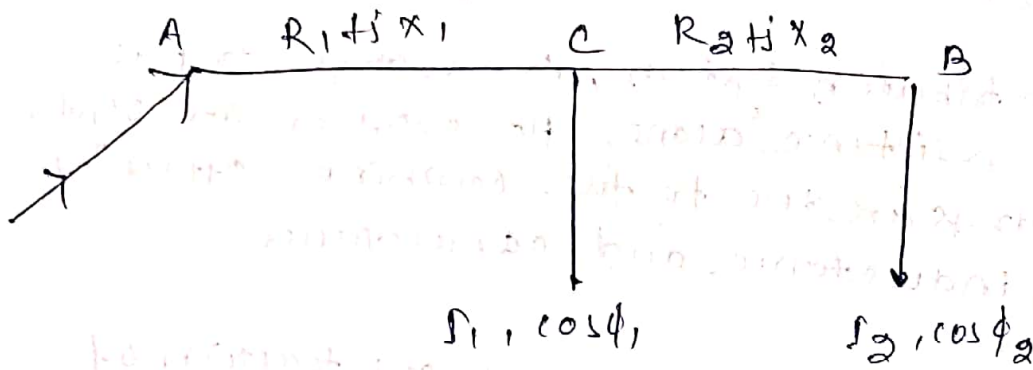 A R₁ + j x₁ C R₂ + j x₂ B
I₁, cosφ₁ I₂, cosφ₂